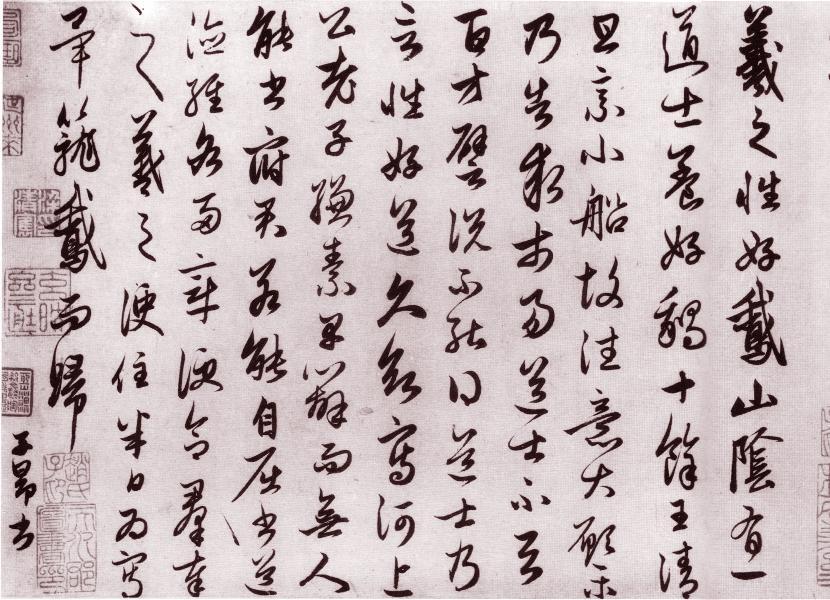 羲之性好鵞山陰有一
道士養好鵝十餘王清
旦乘小船故往意大願樂
乃告求市易道士不与
百方譬説不能得道士乃
言性好道久欲寫河上
公老子縑素早辦而無人
能書府君若能自屈書道
德經各兩章便合羣奉
之羲之便住半日為寫
畢籠鵞而歸
子昂書